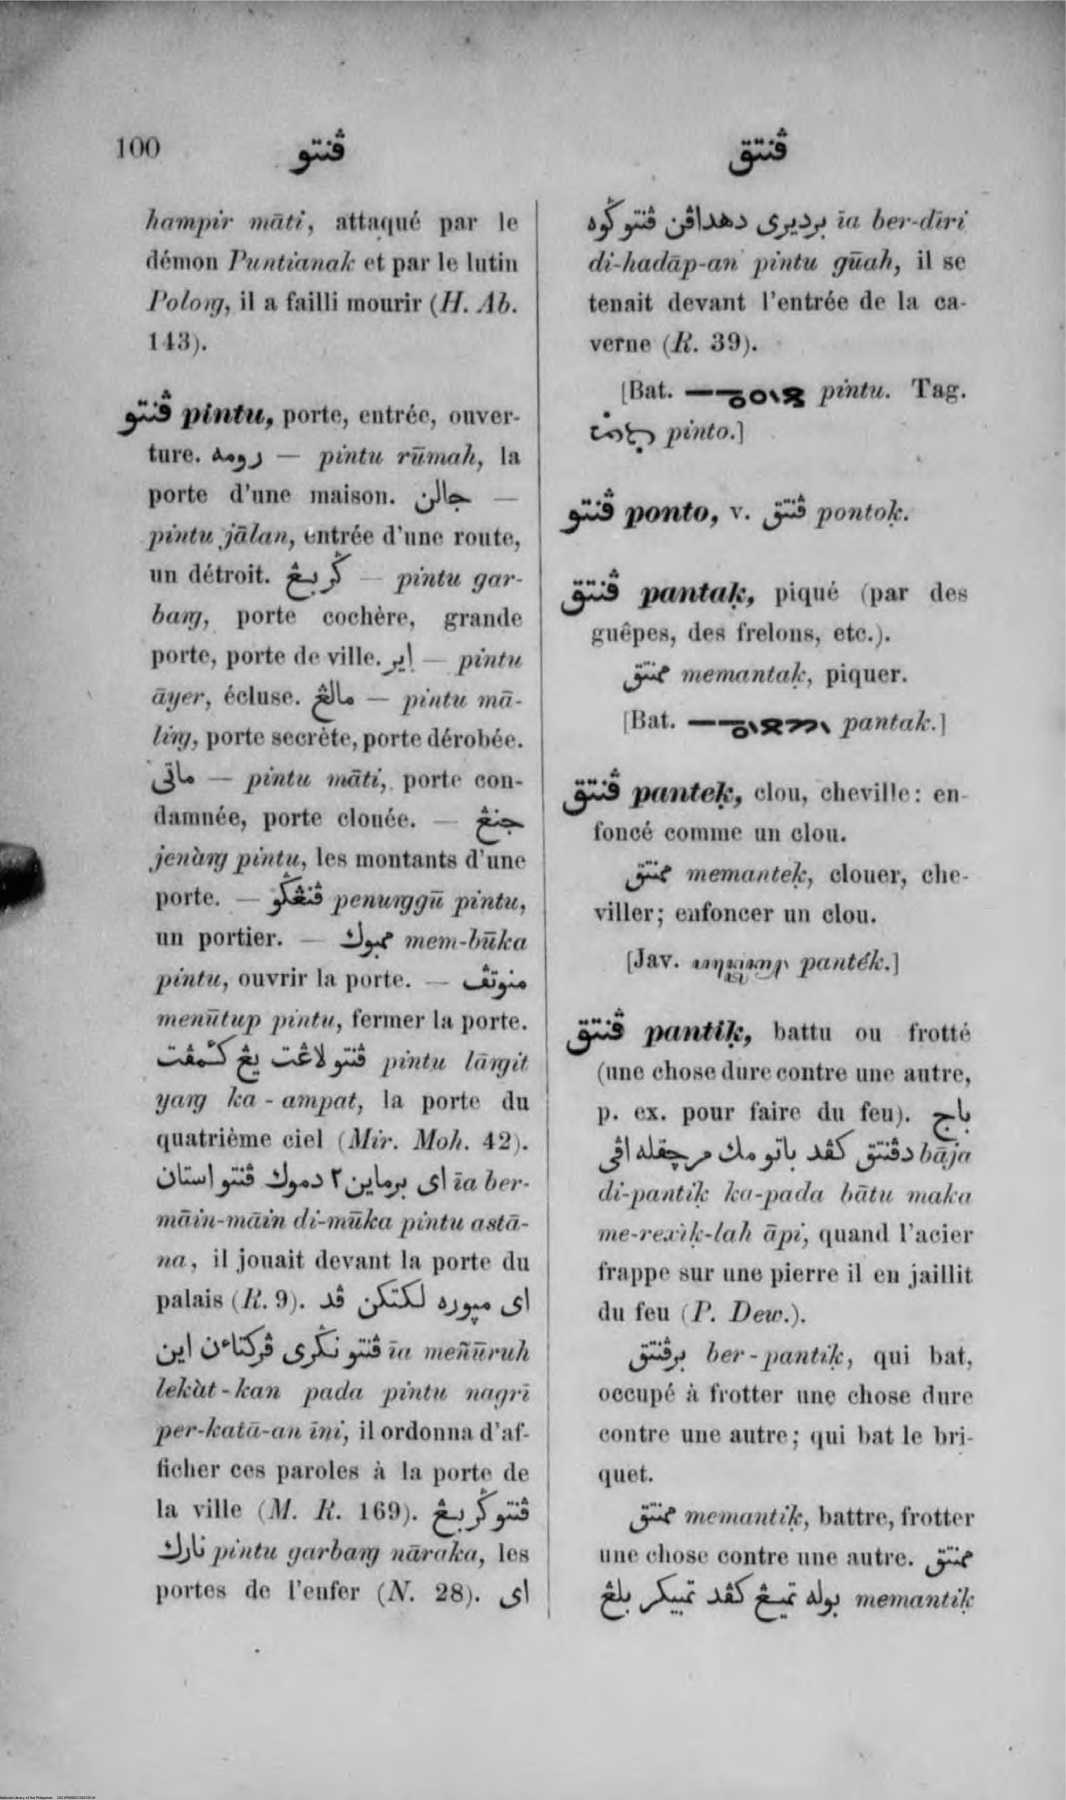 100 ڤنتو ڤنتق
hampir māti, attaqué par le
démon Puntianak et par le lutin
Polong, il a failli mourir (H. Ab.
143).
ڤنتو pintu, porte, entrée, ouver-
ture. رومه — pintu rūmah, la
porte d'une maison. جالن —
pintu jālan, entrée d'une route,
un détroit. ݢربڠ — pintu gar-
bang, porte cochère, grande
porte, porte de ville. اير — pintu
āyer, écluse. مالڠ — pintu mā-
ling, porte secrète, porte dérobée.
ماتى — pintu māti, porte con-
damnée, porte clouée. — جنڠ
jenàng pintu, les montants d'une
porte. — ڤنڠݢو penunggū pintu,
un portier. — ممبوك mem-būka
pintu, ouvrir la porte. — منوتڤ
menūtup pintu, fermer la porte.
ڤنتو لاڠت يڠ كأمڤت pintu lāngit
yang ka-ampat, la porte du
quatrième ciel (Mir. Moh. 42).
اى برماين٢ دموك ڤنتو استان īa ber-
māin-māin di-mūka pintu astā-
na, il jouait devant la porte du
palais (R. 9). اى مپوره لكتكن ڤد
ڤنتو نݢرى ڤركتاءن اين īa meñūruh
lekàt-kan pada pintu nagrī
per-katā-an īni, il ordonna d'af-
ficher ces paroles à la porte de
la ville (M. R. 169). ڤنتو ݢربڠ
نارك pintu garbang nāraka, les
portes de l'enfer (N. 28). اى
برديرى دهداڤن ڤنتو ݢوه īa ber-dīri
di-hadāp-an pintu gūah, il se
tenait devant l'entrée de la ca-
verne (R. 39).
[Bat. pintu. Tag.
pinto.]
ڤنتو ponto, v. ڤنتق pontoḳ.
ڤنتق pantaḳ, piqué (par des
guêpes, des frelons, etc.).
ممنتق memantaḳ, piquer.
[Bat. pantak.]
ڤنتق panteḳ, clou, cheville: en-
foncé comme un clou.
ممنتق memanteḳ, clouer, che-
viller; enfoncer un clou.
[Jav. panték.]
ڤنتق pantiḳ, battu ou frotté
(une chose dure contre une autre,
p. ex. pour faire du feu). باج
دڤنتق كڤد باتو مك مرچقله اڤى bāja
di-pantiḳ ka-pada bātu maka
me-rexiḳ-lah āpi, quand l'acier
frappe sur une pierre il en jaillit
du feu (P. Dew.).
برڤنتق ber-pantiḳ, qui bat,
occupé à frotter une chose dure
contre une autre; qui bat le bri-
quet.
ممنتق memantiḳ, battre, frotter
une chose contre une autre. ممنتق
بوله تميڠ كڤد تمبيكر بلڠ memantiḳ